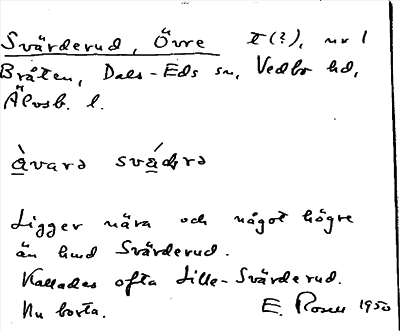 Svärderud, Övre t(?), nr 1
Bråten, Dals-Eds sn, Vedbo hd,
Älvsb. l.
àvarə svádrə
Ligger nära och något högre
än hmd Svärderud.
Kallades ofta Lille-Svärderud.
Nu borta. E. Rosell 1950